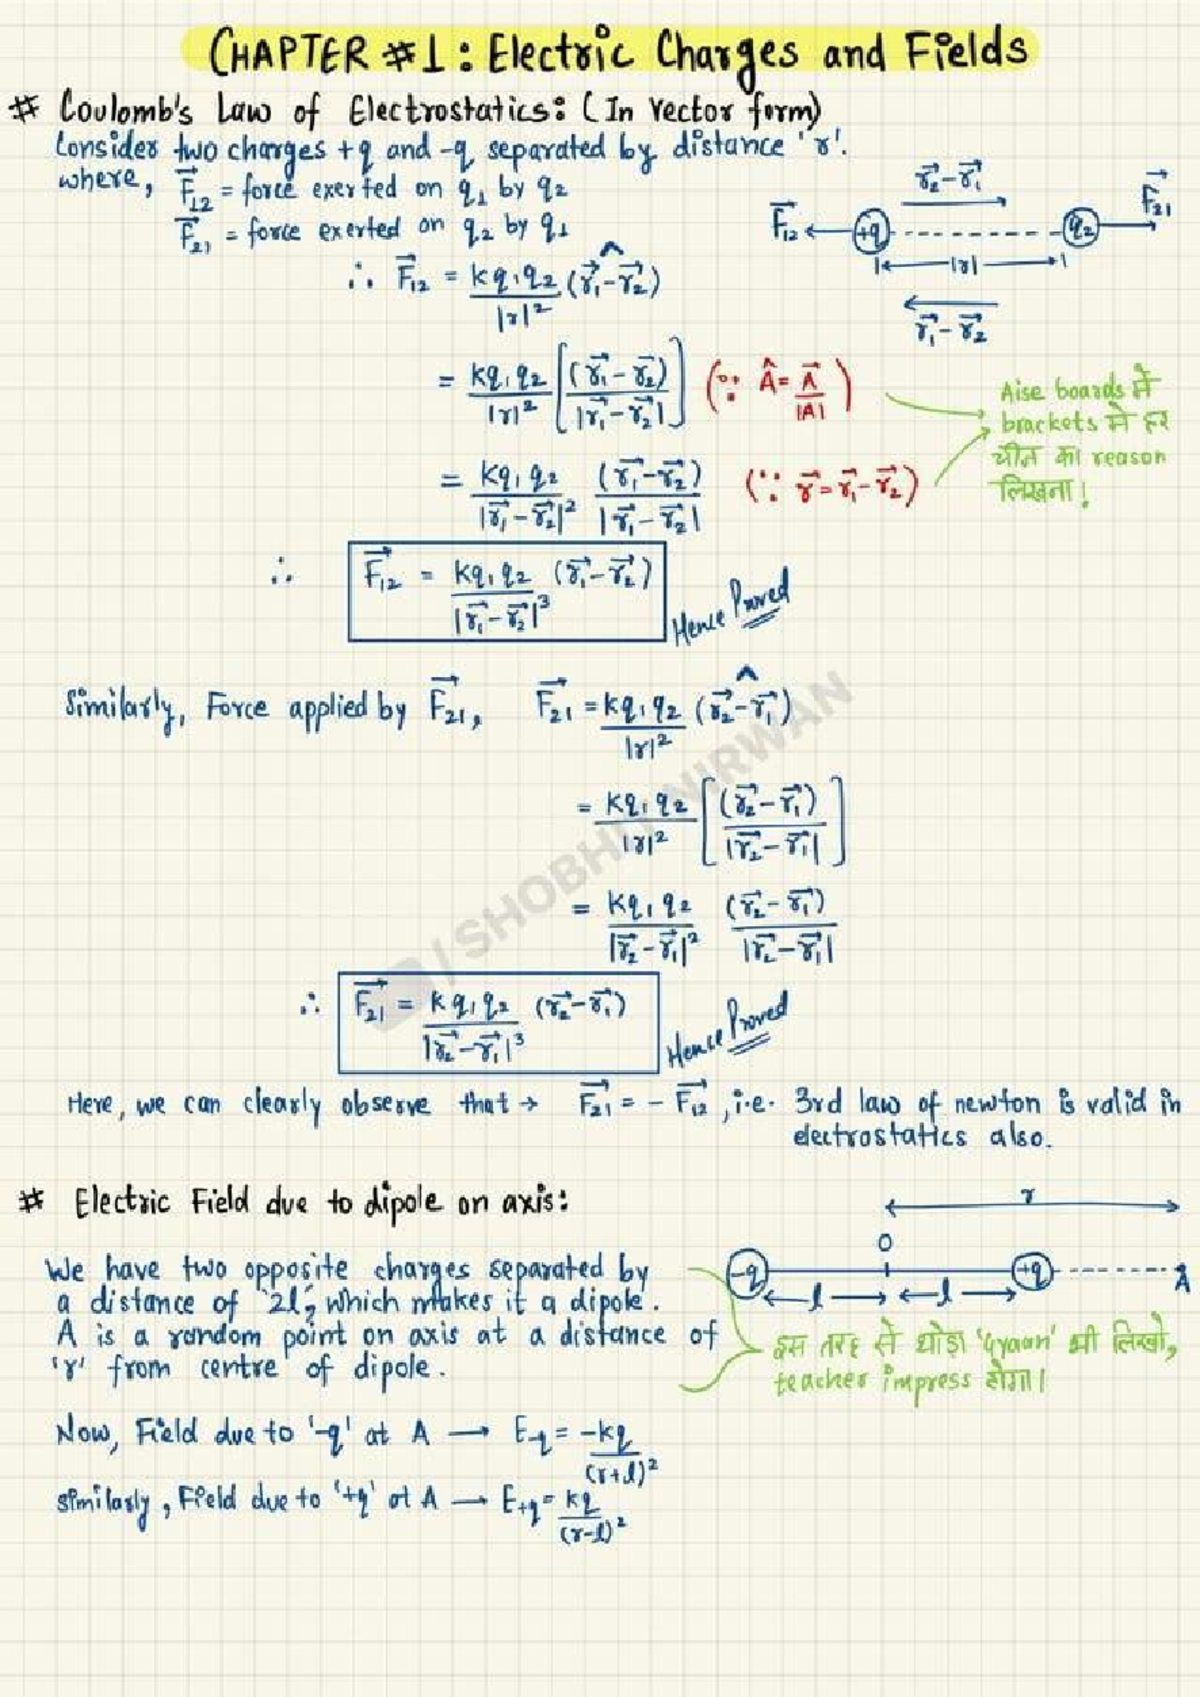 CHAPTER #1: Electric Charges and Fields
# Coulomb's Law of Electrostatics: (In vector form)
Consider two charges +q and -q separated by distance 'r'.
where, F⃗₁₂ = force exerted on q₁ by q₂
F⃗₂₁ = force exerted on q₂ by q₁
r⃗₂-r⃗₁
F⃗₁₂ +q q₂ F⃗₂₁
|r|
r⃗₁-r⃗₂
∴ F⃗₁₂ = kq₁q₂/|r|² (r⃗₁-r⃗₂)^
= kq₁q₂/|r|² [(r⃗₁-r⃗₂)/|r⃗₁-r⃗₂|] (∵ Â = A⃗/|A|)
= kq₁q₂/|r⃗₁-r⃗₂|² (r⃗₁-r⃗₂)/|r⃗₁-r⃗₂| (∵ r⃗=r⃗₁-r⃗₂)
Aise boards में
brackets में हर
चीज का reason
लिखना!
∴ F⃗₁₂ = kq₁q₂/|r⃗₁-r⃗₂|³ (r⃗₁-r⃗₂) Hence Proved
Similarly, Force applied by F⃗₂₁, F⃗₂₁ = kq₁q₂/|r|² (r⃗₂-r⃗₁)^
= kq₁q₂/|r|² [(r⃗₂-r⃗₁)/|r⃗₂-r⃗₁|]
= kq₁q₂/|r⃗₂-r⃗₁|² (r⃗₂-r⃗₁)/|r⃗₂-r⃗₁|
∴ F⃗₂₁ = kq₁q₂/|r⃗₂-r⃗₁|³ (r⃗₂-r⃗₁) Hence Proved
/SHOBHIT NIRWAN
Here, we can clearly observe that → F⃗₂₁ = - F⃗₁₂, i.e. 3rd law of newton is valid in
electrostatics also.
# Electric Field due to dipole on axis:
r
O
-q +q A
l l
We have two opposite charges separated by
a distance of '2l', which makes it a dipole.
A is a random point on axis at a distance of
'r' from centre of dipole.
इस तरह से थोड़ा 'Gyaan' भी लिखो,
teacher impress होगा।
Now, Field due to '-q' at A → E-q = -kq/(r+l)²
similarly, Field due to '+q' at A → E+q = kq/(r-l)²